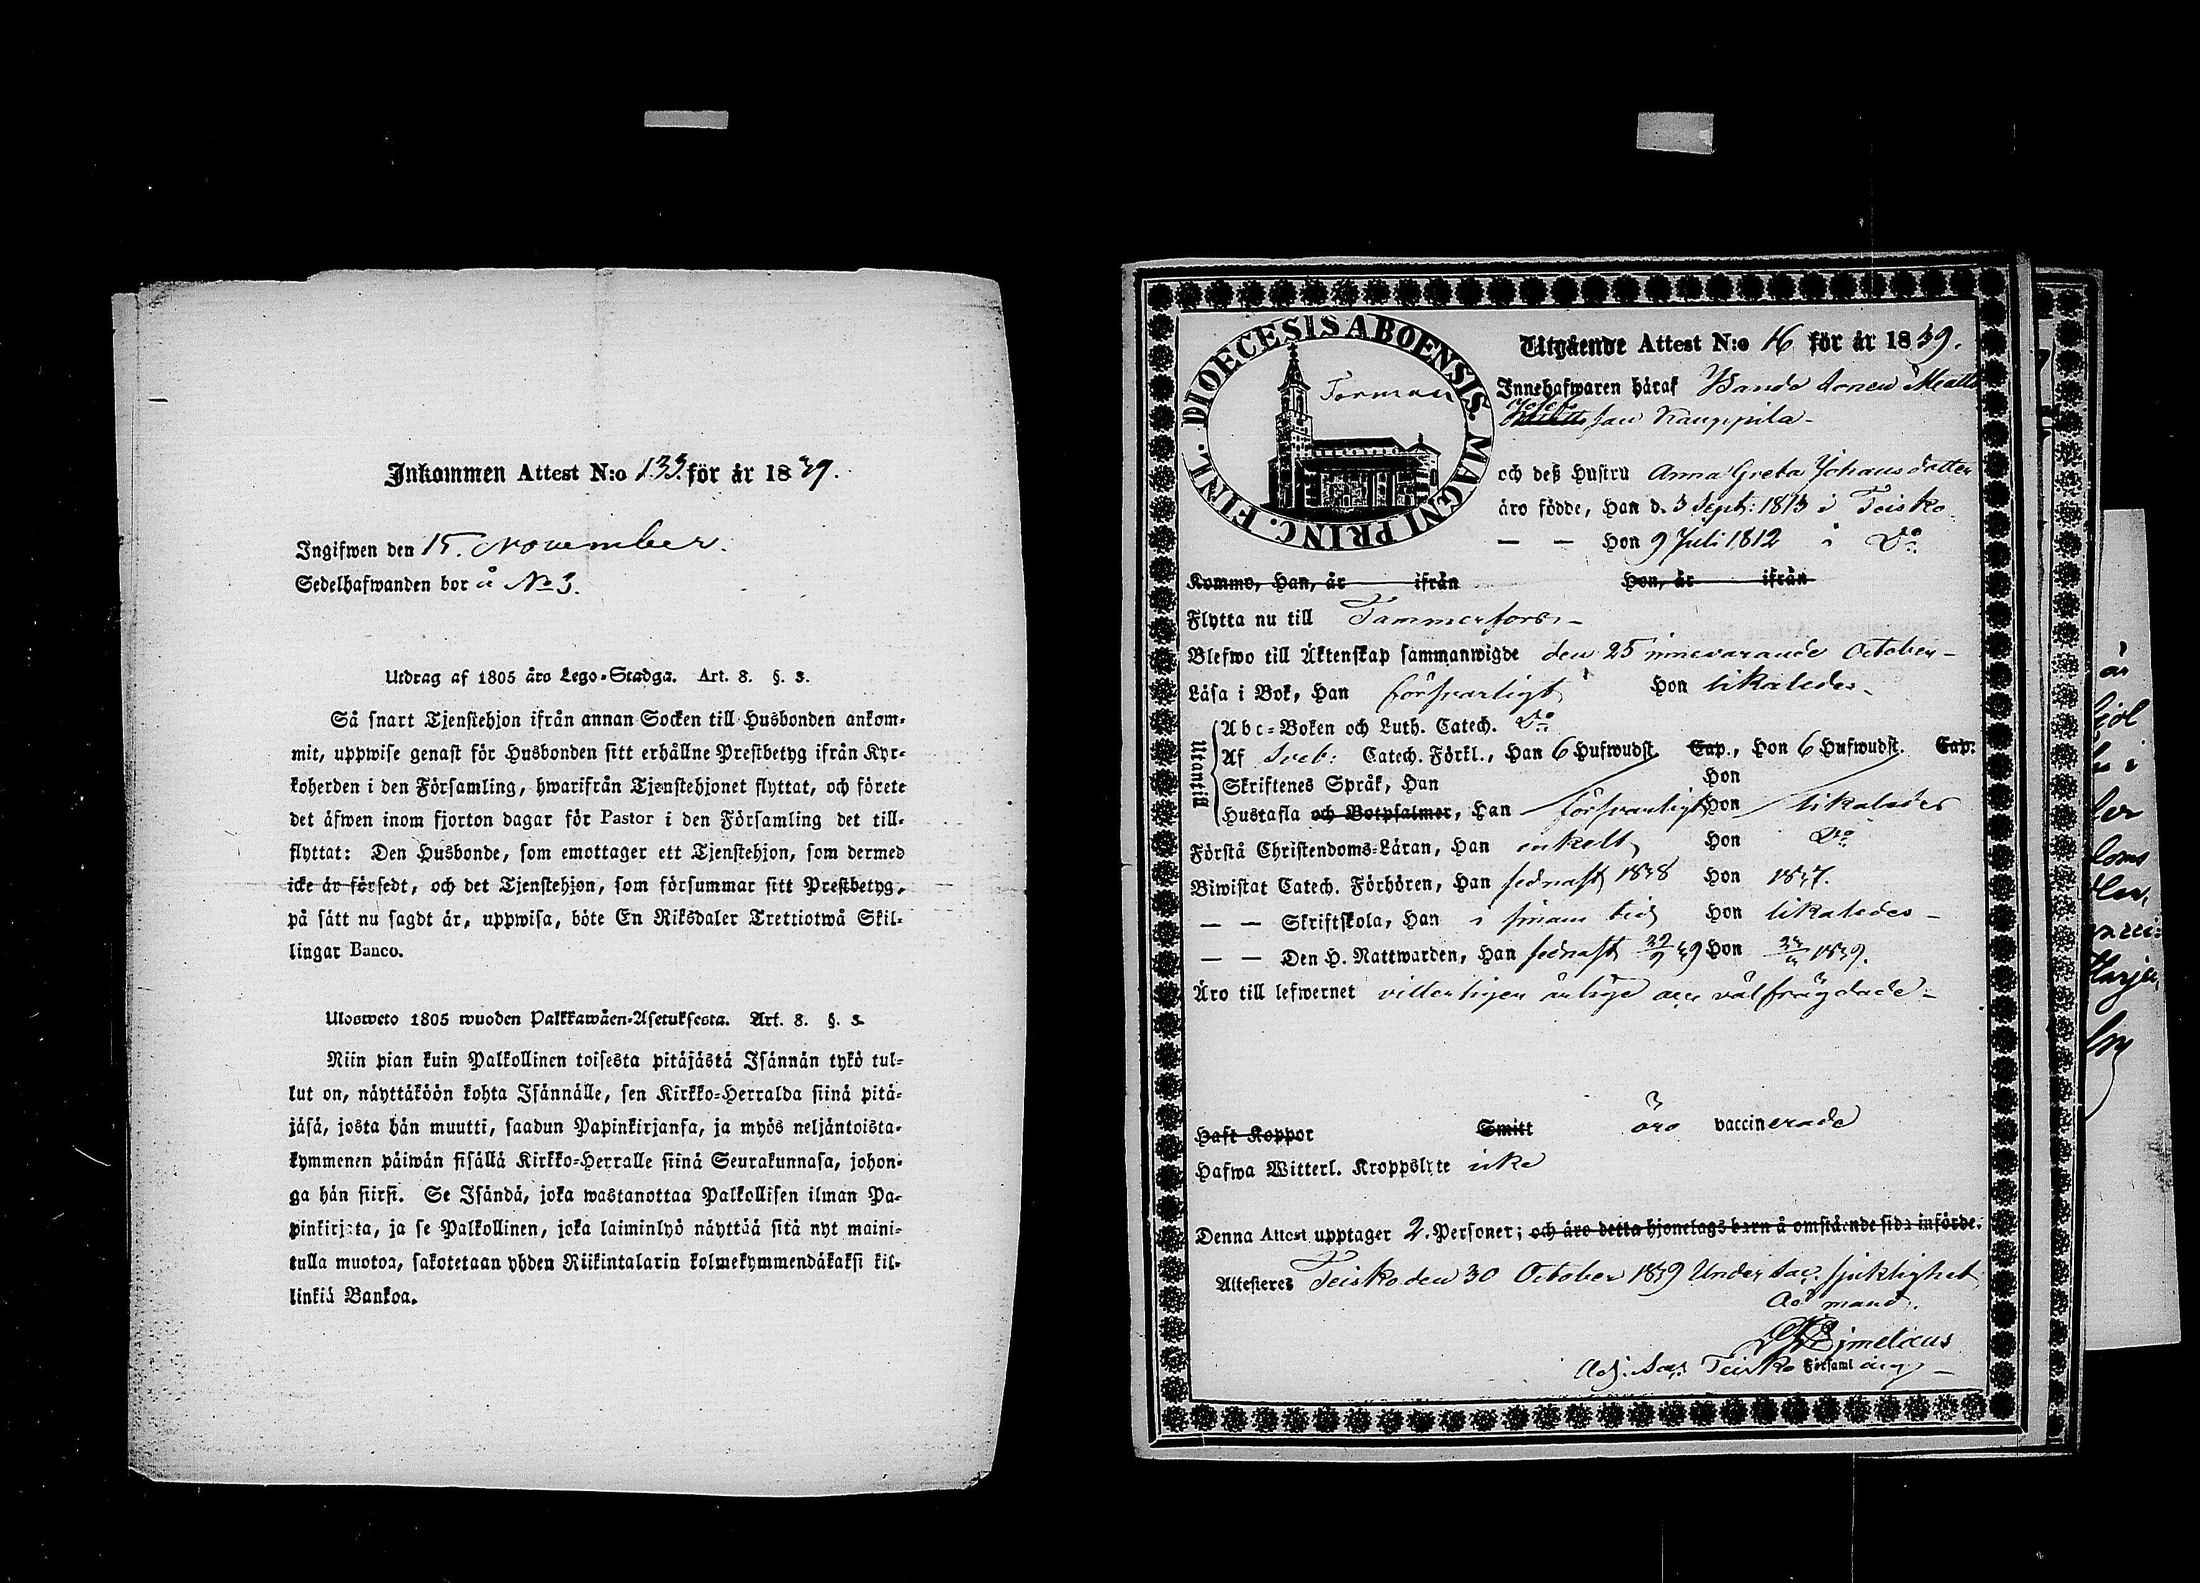 Inkommen Attest N:o 133. för år 1839.
Ingifwen den 15. November.
Sedelhafwanden bor å No 3.
Utdrag af 1805 års Lego-Stadga. Art. 8. §. 3.
Så snart Tjenstehjon ifrån annan Socken till Husbonden ankom-
mit, uppwise genast för Husbonden sitt erhållne Prestbetyg ifrån Kyr-
koherden i den Församling, hwarifrån Tjenstehjonet flyttat, och förete
det äfwen inom fjorton dagar för Pastor i den Församling det till-
flyttat: Den Husbonde, som emottager ett Tjenstehjon, som dermed
icke är försedt, och det Tjenstehjon, som försummar sitt Prestbetyg,
på sätt nu sagdt är, uppwisa, böte En Riksdaler Trettiotwå Skil-
lingar Banco.
Ulosweto 1805 wuoden Palkkawäen-Asetuksesta. Art. 8. §. 3.
Niin pian kuin Palkollinen toisesta pitäjästä Isännän tykö tul-
lut on, näyttäköön kohta Isännälle, sen Kirkko-Herralda siinä pitä-
jäsä, josta hän muutti, saadun Papinkirjansa, ja myös neljäntoista-
kymmenen päiwän sisällä Kirkko-Herralle siinä Seurakunnasa, johon-
ga hän siirsi. Se Isändä, joka wastanottaa Palkollisen ilman Pa-
pinkirjata, ja se Palkollinen, joka laiminlyö näyttää sitä nyt maini-
tulla muotoa, sakotetaan yhden Riikintalarin kolmekymmendäkaksi kil-
linkiä Bankoa.
DIOECESIS ABOENSIS. MAGNI PRINC. FINL.
Utgående Attest N:o 16 för år 1839.
Innehafwaren häraf Bonde Sonen Matts
Josefsson Kauppila
och deß Hustru Anna Greta Johansdotter
äro födde, Han d. 3 Sept: 1813 i Teisko
— — Hon 9 Juli 1812 i Do
Kommo, Han, år ifrån Hon, år ifrån
Flytta nu till Tammerfors
Blefwo till Äktenskap sammanwigde den 25 innevarande October
Läsa i Bok, Han försvarligt Hon likaledes
Utantill
Abc-Boken och Luth. Catech. Do
Af Sveb: Catech. Förkl., Han 6 Hufwudst. Cap., Hon 6 Hufwudst. Cap.
Skriftenes Språk, Han Hon
Hustafla och Botpsalmer, Han försvarligt Hon likaledes
Förstå Christendoms-Läran, Han enkelt Hon Do
Biwistat Catech. Förhören, Han sednast 1838 Hon 1837.
— — Skriftskola, Han i sinom tid Hon likaledes
— — Den H. Nattwarden, Han sednast 39 Hon 1839.
Äro till lefwernet vitterligen ärlige och välfrägdade
Haft Koppor Smitt äro vaccinerade
Hafwa Witterl. Kroppslyte icke
Denna Attest upptager 2. Personer; och äro detta hjonelags barn å omstående sida införde.
Attesteras Teisko den 30 October 1839 Under Sac. sjuklighet
Ad mand.
Adj. Sac. Teisko Församling